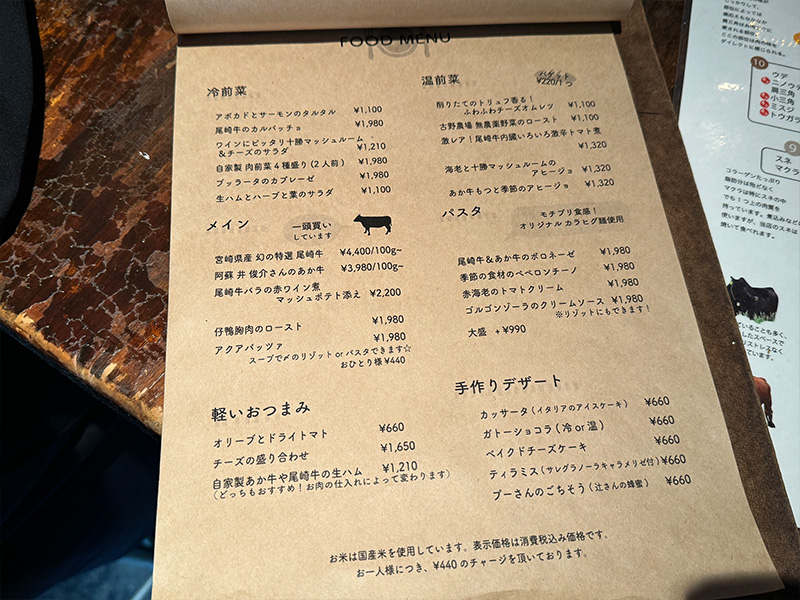 FOOD MENU
冷前菜
アボカドとサーモンのタルタル ¥1,100
尾崎牛のカルパッチョ ¥1,980
ワインにピッタリ十勝マッシュルーム
&チーズのサラダ ¥1,210
自家製 肉前菜4種盛り(2人前) ¥1,980
ブッラータのカプレーゼ ¥1,980
生ハムとハーブと葉のサラダ ¥1,100
メイン
一頭買い
しています
宮崎県産 幻の特選 尾崎牛 ¥4,400/100g~
阿蘇 井 俊介さんのあか牛 ¥3,980/100g~
尾崎牛バラの赤ワイン煮
マッシュポテト添え ¥2,200
仔鴨胸肉のロースト ¥1,980
アクアパッツァ ¥1,980
スープで〆のリゾット or パスタできます☆
おひとり様 ¥440
軽いおつまみ
オリーブとドライトマト ¥660
チーズの盛り合わせ ¥1,650
自家製あか牛や尾崎牛の生ハム ¥1,210
(どっちもおすすめ!お肉の仕入れによって変わります)
温前菜
バゲット
¥220/1つ
削りたてのトリュフ香る!
ふわふわチーズオムレツ ¥1,100
古野農場 無農薬野菜のロースト ¥1,100
激レア!尾崎牛内臓いろいろ激辛トマト煮
¥1,320
海老と十勝マッシュルームの
アヒージョ ¥1,320
あか牛もつと季節のアヒージョ ¥1,320
パスタ
モチプリ食感!
オリジナル カラヒグ麺使用
尾崎牛&あか牛のボロネーゼ ¥1,980
季節の食材のペペロンチーノ ¥1,980
赤海老のトマトクリーム ¥1,980
ゴルゴンゾーラのクリームソース ¥1,980
※リゾットにもできます!
大盛 +¥990
手作りデザート
カッサータ(イタリアのアイスケーキ) ¥660
ガトーショコラ(冷 or 温) ¥660
ベイクドチーズケーキ ¥660
ティラミス(サレグラノーラキャラメリゼ付) ¥660
プーさんのごちそう(辻さんの蜂蜜) ¥660
お米は国産米を使用しています。表示価格は消費税込み価格です。
お一人様につき、¥440 のチャージを頂いております。
しっかりして、
部位によっては
ここの部位は肉の味を
ダイレクトに感じられる。
10
ウデ
ニノウデ
肩三角
小三角
ミスジ
トウガラ
9
スネ
マクラ
コラーゲンたっぷり
脂肪分は殆どなく
マクラは特にスネの中
でも1つ上の肉質を
持っています。煮込みなどに
使いますが、当店のスネは
焼いて食べれます。